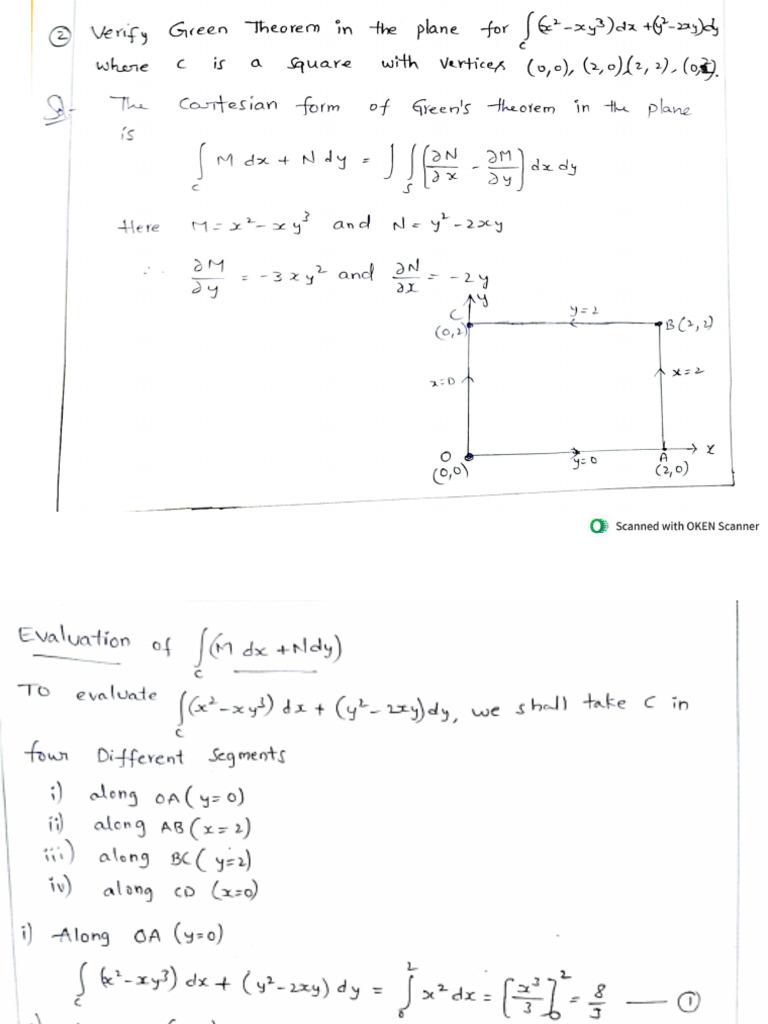 ② Verify Green Theorem in the plane for ∫_C (x²-xy³)dx+(y²-2xy)dy
where C is a square with vertices (0,0), (2,0)(2,2), (0,2).
Sol:- The Cartesian form of Green's theorem in the plane
is
∫_C M dx + N dy = ∫∫_S (∂N/∂x - ∂M/∂y) dx dy
Here M = x² - xy³ and N = y² - 2xy
∴ ∂M/∂y = -3xy² and ∂N/∂x = -2y
y
C
(0,2)
y=2
B(2,2)
x=0
x=2
O
(0,0)
y=0
A
(2,0)
x
Scanned with OKEN Scanner
Evaluation of ∫_C (M dx + N dy)
To evaluate ∫_C (x²-xy³) dx + (y²-2xy)dy, we shall take C in
four Different segments
i) along OA (y=0)
ii) along AB (x=2)
iii) along BC (y=2)
iv) along CD (x=0)
i) Along OA (y=0)
∫_C (x²-xy³) dx + (y²-2xy) dy = ∫_0^2 x² dx = [x³/3]_0^2 = 8/3 — ①